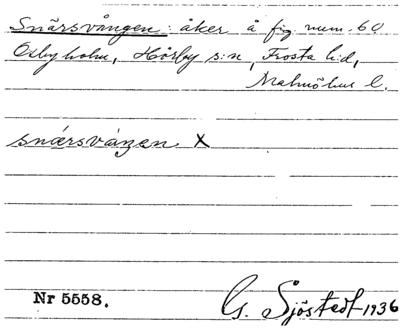 Snärsvången: åker å fig. num. 60
Osbyholm, Hörby s:n, Frosta h:d,
Malmöhus l.
snærsvåŋen X
Nr 5558.
G. Sjöstedt 1936